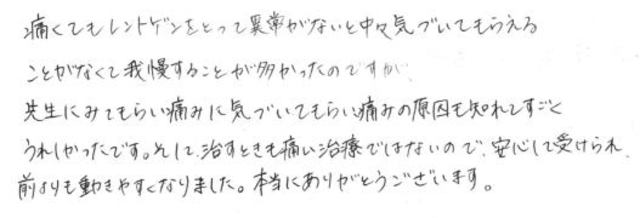 痛くてもレントゲンをとって異常がないと中々気づいてもらえる
ことがなくて我慢することが多かったのですが、
先生にみてもらい痛みに気づいてもらい痛みの原因も知れてすごく
うれしかったです。そして、治すときも痛い治療ではないので、安心して受けられ、
前よりも動きやすくなりました。本当にありがとうございます。